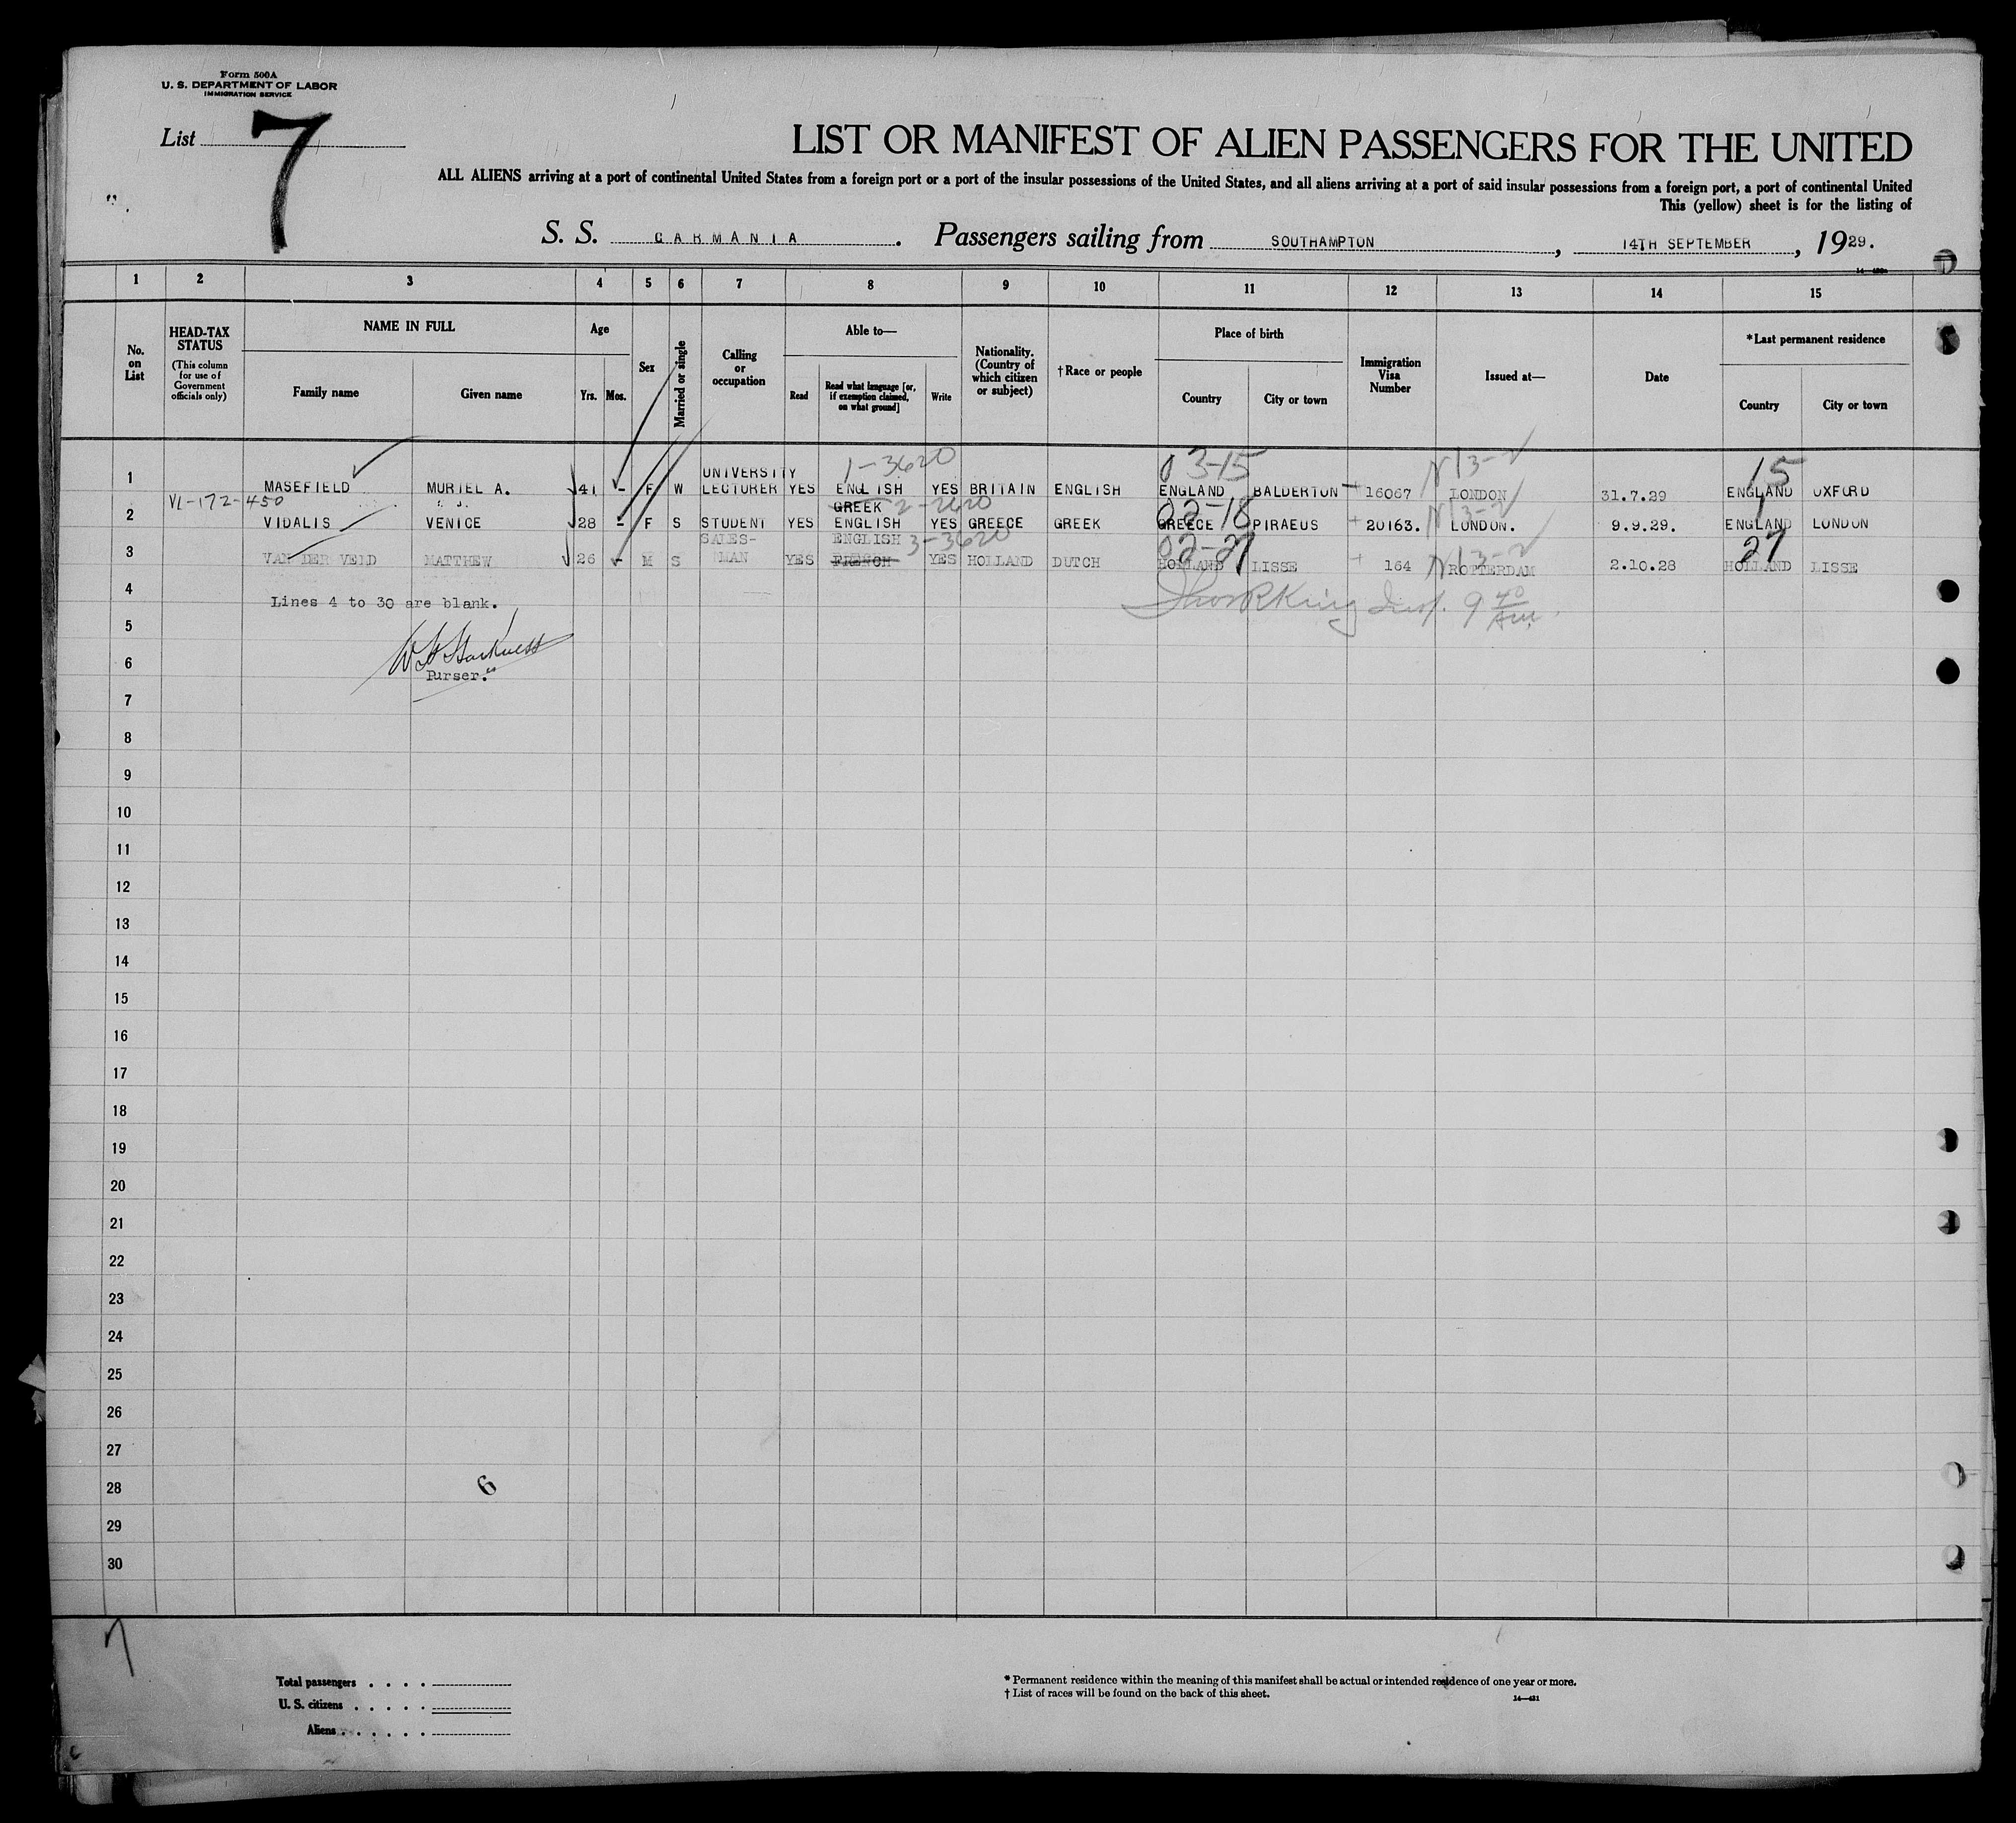 Form 500A
U. S. DEPARTMENT OF LABOR
IMMIGRATION SERVICE
List 7
LIST OR MANIFEST OF ALIEN PASSENGERS FOR THE UNITED
ALL ALIENS arriving at a port of continental United States from a foreign port or a port of the insular possessions of the United States, and all aliens arriving at a port of said insular possessions from a foreign port, a port of continental United
This (yellow) sheet is for the listing of
S. S. CARMANIA. Passengers sailing from SOUTHAMPTON, 14TH SEPTEMBER, 1929.
1 2 3 4 5 6 7 8 9 10 11 12 13 14 15
No. on List
HEAD-TAX STATUS
(This column for use of Government officials only)
NAME IN FULL
Family name Given name
Age
Yrs. Mos.
Sex
Married or single
Calling or occupation
Able to—
Read
Read what language [or, if exemption claimed, on what ground]
Write
Nationality. (Country of which citizen or subject)
†Race or people
Place of birth
Country City or town
Immigration Visa Number
Issued at—
Date
*Last permanent residence
Country City or town
1-3620 03-15 N13-2 15
1 MASEFIELD MURIEL A. 41 - F W UNIVERSITY LECTURER YES ENGLISH YES BRITAIN ENGLISH ENGLAND BALDERTON 16067 LONDON 31.7.29 ENGLAND OXFORD
VL-172-450 GREEK 2-2620 02-18 N13-2
2 VIDALIS VENICE 28 - F S STUDENT YES ENGLISH YES GREECE GREEK GREECE PIRAEUS 20163. LONDON. 9.9.29. ENGLAND LONDON
3-3620 02-27 N13-2 27
3 VAN DER VELD MATTHEW 26 - M S SALES-MAN YES ENGLISH FRENCH YES HOLLAND DUTCH HOLLAND LISSE 164 ROTTERDAM 2.10.28 HOLLAND LISSE
4 Lines 4 to 30 are blank.
Thos R King Insp. 9 40 AM
5
W H Harkness
6 Purser.
7
8
9
10
11
12
13
14
15
16
17
18
19
20
21
22
23
24
25
26
27
28 6
29
30
7
Total passengers
U. S. citizens
Aliens
* Permanent residence within the meaning of this manifest shall be actual or intended residence of one year or more.
† List of races will be found on the back of this sheet.
14—431